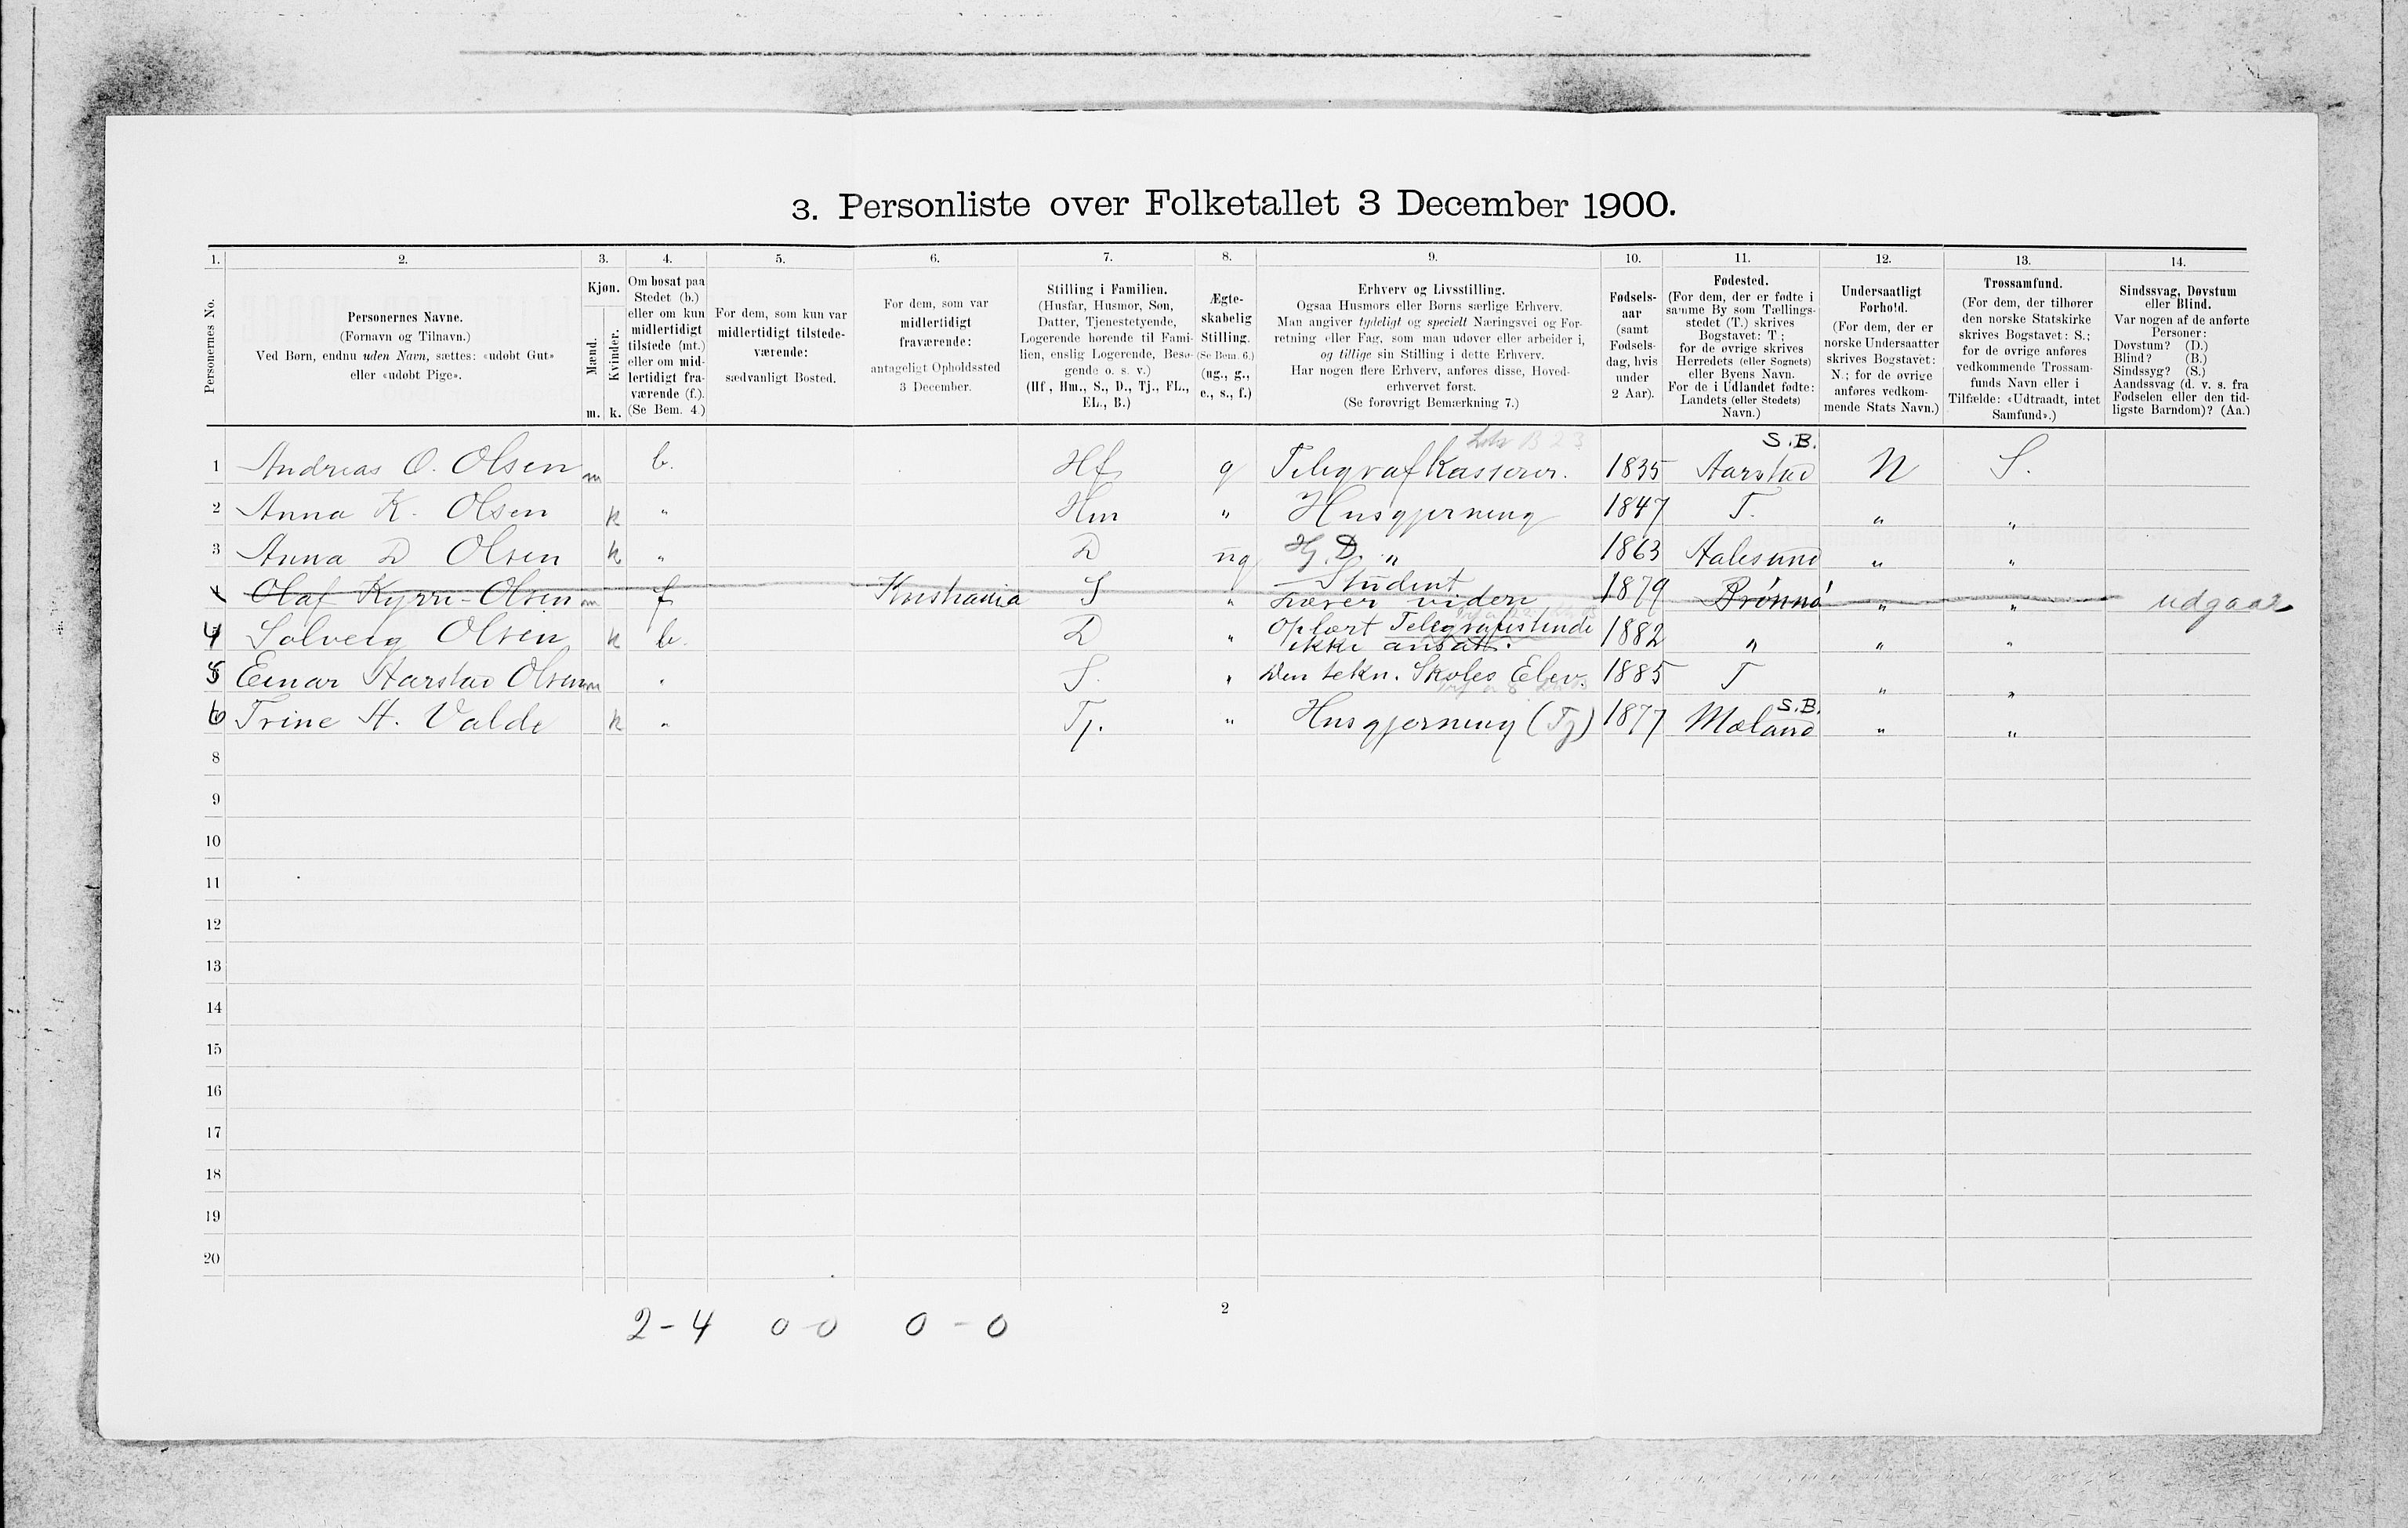 3. Personliste over Folketallet 3 December 1900.
1. 2. 3. 4. 5. 6. 7. 8. 9. 10. 11. 12. 13. 14.
Personernes No.
Personernes Navne.
(Fornavn og Tilnavn.)
Ved Børn, endnu uden Navn, sættes: «udøbt Gut»
eller «udøbt Pige».
Kjøn.
Mænd.
Kvinder.
m. k.
Om bosat paa
Stedet (b.)
eller om kun
midlertidigt
tilstede (mt.)
eller om mid-
lertidigt fra-
værende (f.).
(Se Bem. 4.)
For dem, som kun var
midlertidigt tilstede-
værende:
sædvanligt Bosted.
For dem, som var
midlertidigt
fraværende:
antageligt Opholdssted
3 December.
Stilling i Familien.
(Husfar, Husmor, Søn,
Datter, Tjenestetyende,
Logerende hørende til Fami-
lien, enslig Logerende, Besø-
gende o. s. v.)
(Hf., Hm., S., D., Tj., FL.,
EL., B.)
Ægte-
skabelig
Stilling.
(Se Bem. 6.)
(ug., g.,
e., s., f.)
Erhverv og Livsstilling.
Ogsaa Husmors eller Børns særlige Erhverv.
Man angiver tydeligt og specielt Næringsvei og For-
retning eller Fag, som man udøver eller arbeider i,
og tillige sin Stilling i dette Erhverv.
Har nogen flere Erhverv, anføres disse, Hoved-
erhvervet først.
(Se forøvrigt Bemærkning 7.)
Fødsels-
aar
(samt
Fødsels-
dag, hvis
under
2 Aar).
Fødested.
(For dem, der er fødte i
samme By som Tællings-
stedet (T.) skrives
Bogstavet: T;
for de øvrige skrives
Herredets (eller Sognets)
eller Byens Navn.
For de i Udlandet fødte:
Landets (eller Stedets)
Navn.)
Undersaatligt
Forhold.
(For dem, der er
norske Undersaatter
skrives Bogstavet:
N.; for de øvrige
anføres vedkom-
mende Stats Navn.)
Trossamfund.
(For dem, der tilhører
den norske Statskirke
skrives Bogstavet: S.;
for de øvrige anføres
vedkommende Trossam-
funds Navn eller i
Tilfælde: «Udtraadt, intet
Samfund».)
Sindssvag, Døvstum
eller Blind.
Var nogen af de anførte
Personer:
Døvstum? (D.)
Blind? (B.)
Sindssyg? (S.)
Aandssvag (d. v. s. fra
Fødselen eller den tid-
ligste Barndom)? (Aa.)
S.B.
1 Andreas O. Olsen m b. Hf g Telegrafkasserer. 1835 Aarstad N S.
2 Anna K. Olsen k " Hm " Husgjerning 1847 T. " "
3 Anna D Olsen k " D ug Hj. D. " 1863 Aalesund " "
Student
Olaf Kyrre-Olsen m f Kristiania S " Læser videre 1879 Brønnø " " udgaar
Oplært Telegrafistinde
4 Solveig Olsen k b. D " ikke ansat. 1882 " " "
5 Einar Aarstad Olsen m " S. " Den tekn. Skoles Elev. 1885 T " "
S.B.
6 Trine A. Valde k " Tj. " Husgjerning (Tj) 1877 Mæland " "
8
9
10
11
12
13
14
15
16
17
18
19
20
2
2-4 0-0 0-0